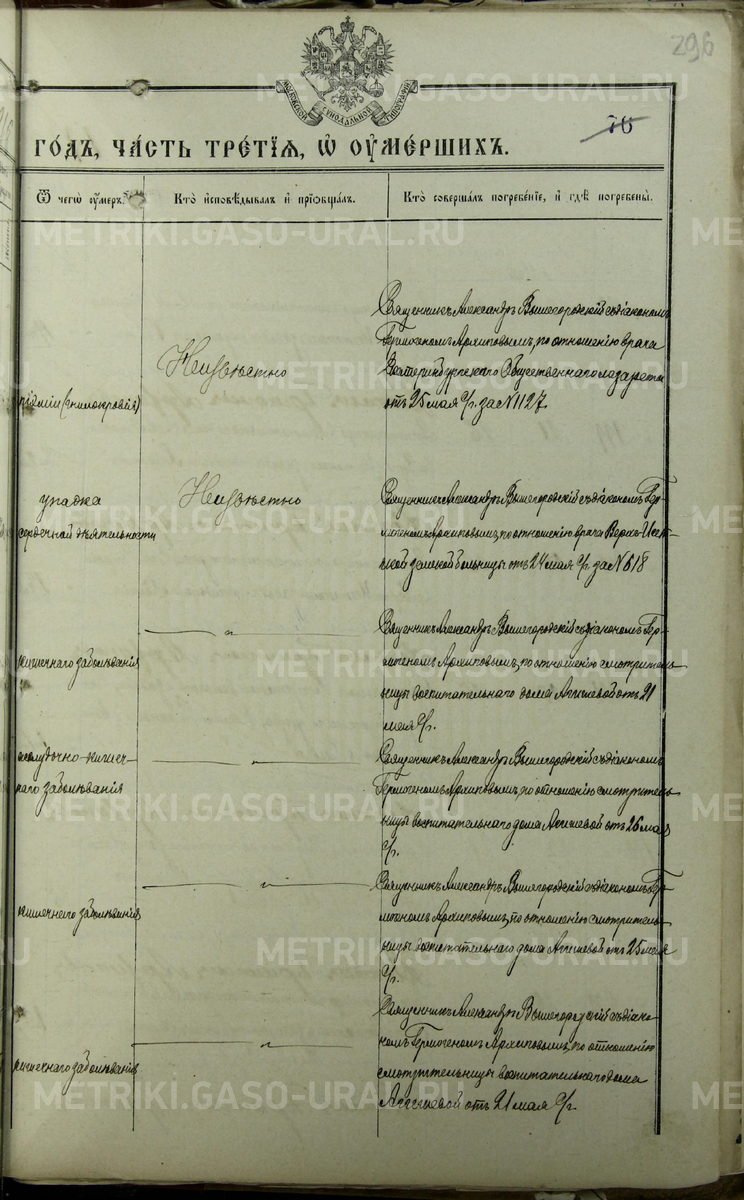 296
МОСКОВСКОЙ СѴНОДАЛЬНОЙ ТИПОГРАФІИ
70
ГО́ДЪ, ЧА́СТЬ ТРЕ́ТІѦ, Ѡ҆ ОУ҆МЕ́РШИХЪ.
Ѿ чегѡ̀ оу҆́меръ.
Кто̀ и҆сповѣ́дывалъ и҆ прїѡбща́лъ.
Кто̀ соверша́лъ погребе́нїе, и҆ гдѣ̀ погребены̀.
піэміи (гнилокровія)
Неизвѣстно
Священникъ Александръ Вышегородскій съ діакономъ
Гермогеномъ Архиповымъ, по отношенію врача
Екатеринбургскаго Общественнаго лазарета
отъ 25 мая с/г. за № 1127.
упадка
сердечной дѣятельности
Неизвѣстно
Священникъ Александръ Вышегородскій съ діакономъ Гер-
могеномъ Архиповымъ, по отношенію врача Верхъ-Исет-
ской земской больницы отъ 24 мая с/г. за № 618
кишечнаго заболѣванія
— „ —
Священникъ Александръ Вышегородскій съ діакономъ Гер-
могеномъ Архиповымъ, по отношенію смотритель-
ницы воспитательнаго дома отъ 21
мая с/г.
желудочно-кишеч-
наго заболѣванія
— „ —
Священникъ Александръ Вышегородскій съ діакономъ
Гермогеномъ Архиповымъ, по отношенію смотритель-
ницы воспитательнаго дома отъ 26 мая
с/г.
кишечнаго заболѣванія
— „ —
Священникъ Александръ Вышегородскій съ діакономъ Гер-
могеномъ Архиповымъ, по отношенію смотритель-
ницы воспитательнаго дома отъ 25 мая
с/г.
кишечнаго заболѣванія
— „ —
Священникъ Александръ Вышегородскій съ діако-
номъ Гермогеномъ Архиповымъ, по отношенію
смотрительницы воспитательнаго дома
отъ 21 мая с/г.
METRIKI.GASO-URAL.RU